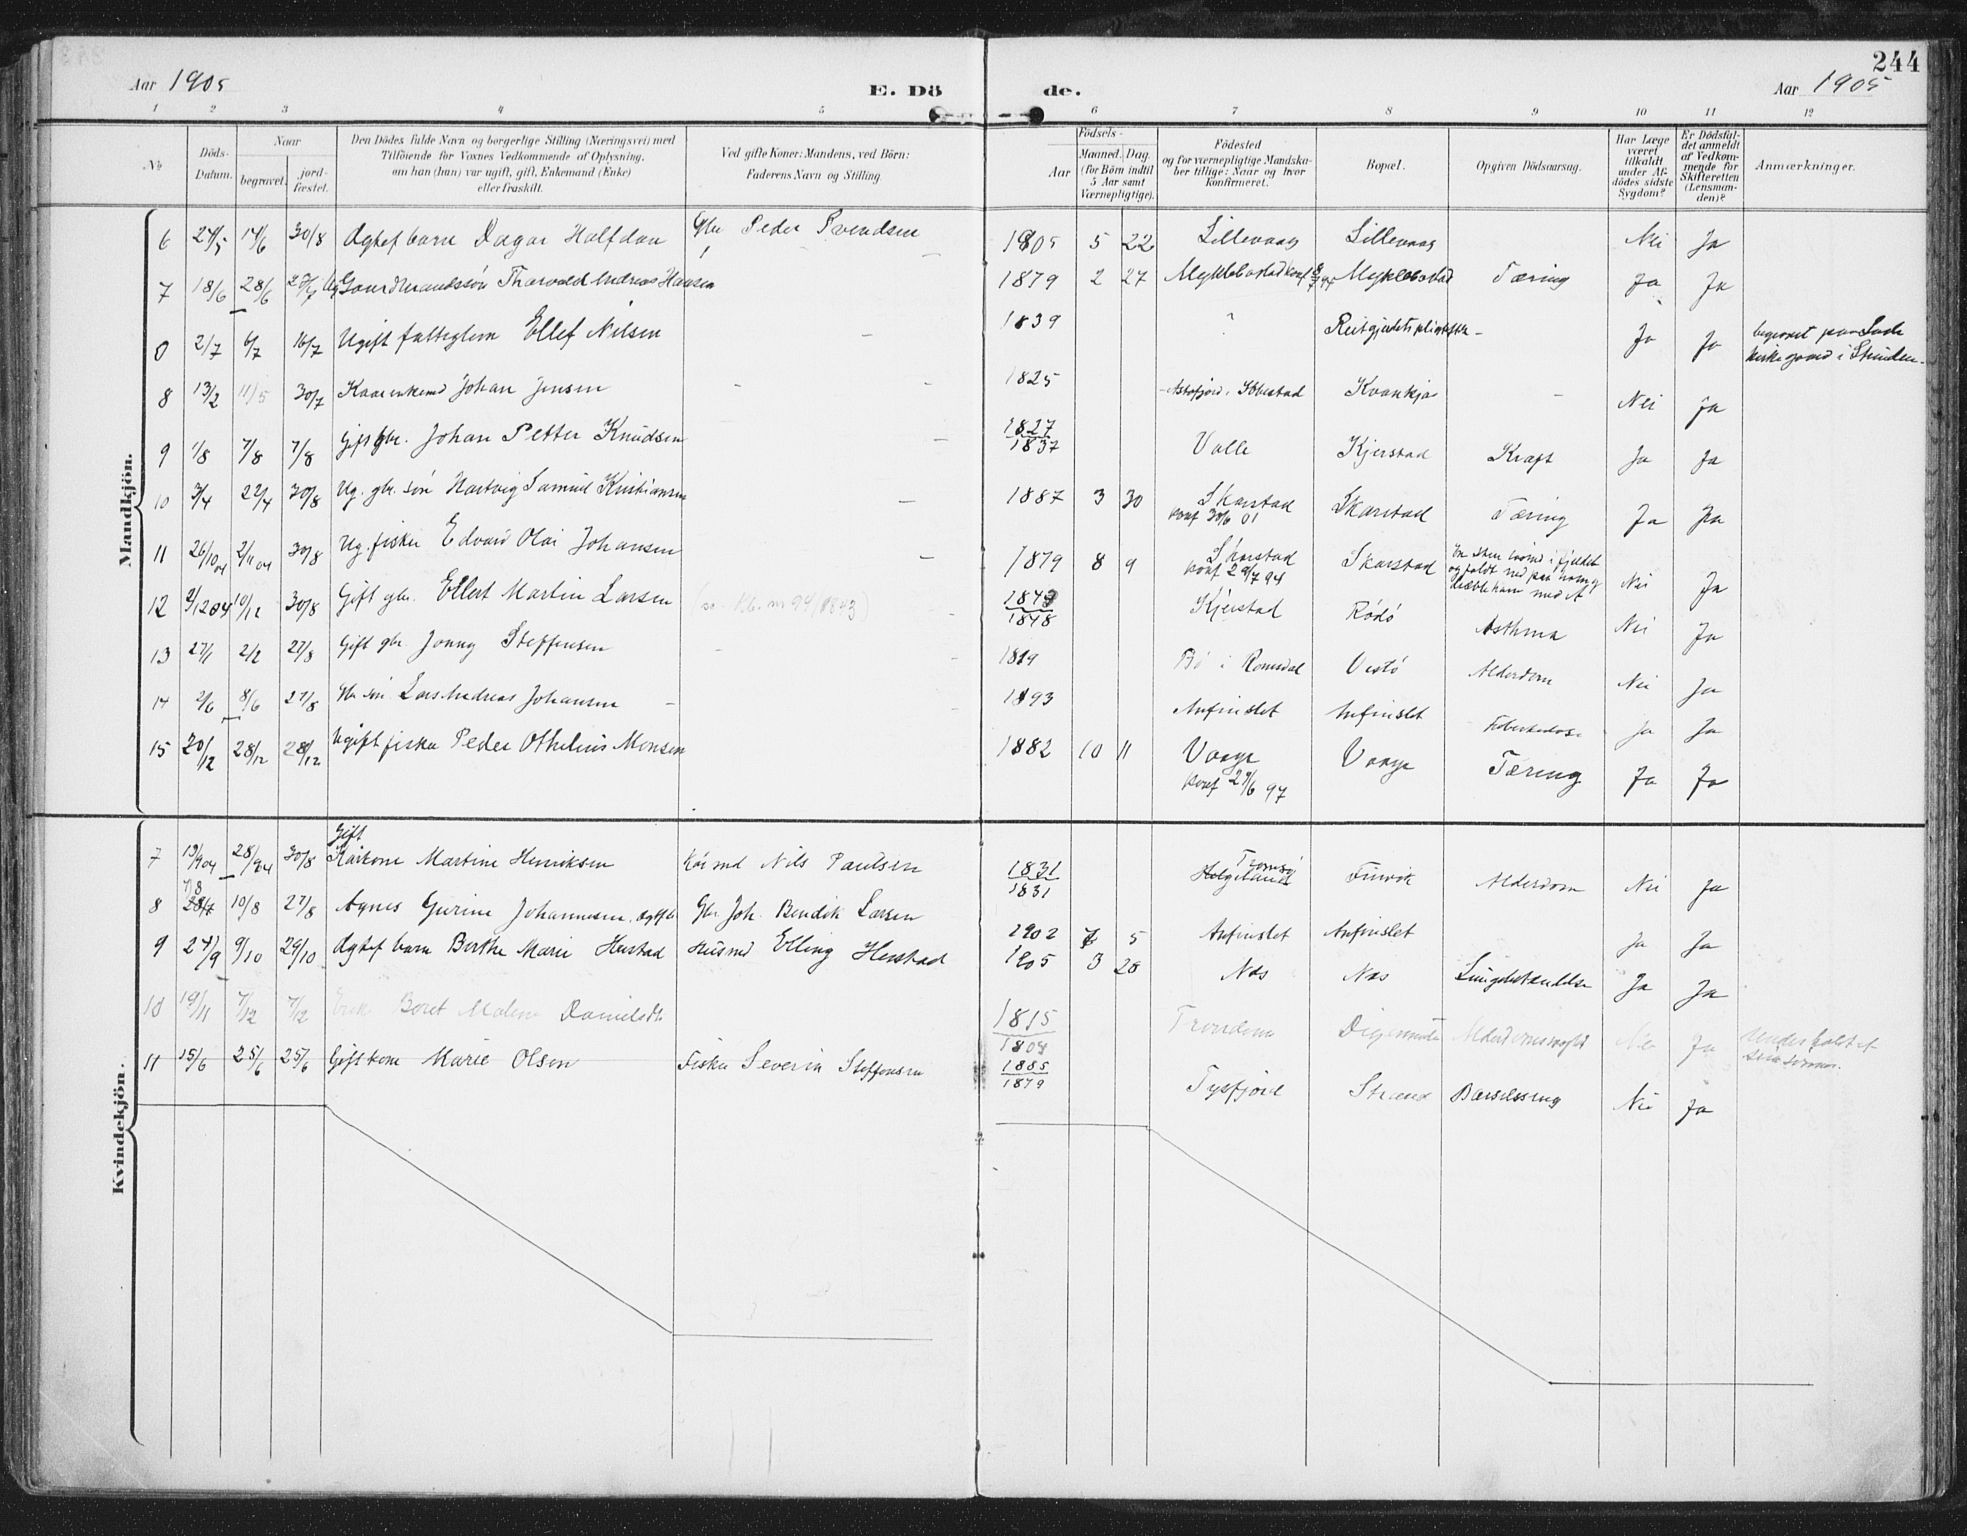 244
Aar 1905 E. Dö de. Aar 1905
1 2 3 4 5 6 7 8 9 10 11 12
No
Döds-Datum.
Naar
begravet.
jord-fæstet.
Den Dödes fulde Navn og borgerlige Stilling (Næringsvei) med
Tilföiende for Voxnes Vedkommende af Oplysning,
om han (hun) var ugift, gift, Enkemand (Enke)
eller fraskilt.
Ved gifte Koner: Mandens, ved Börn:
Faderens Navn og Stilling
Födsels-
Aar
Maaned. Dag.
(for Börn indtil
5 Aar samt
Værnepligtige).
Födested
og for værnepligtige Mandska-
ber tillige: Naar og hvor
konfirmeret.
Bopæl.
Opgiven Dödsaarsag.
Har Læge
været
tilkaldt
under Af-
dödes sidste
Sygdom?
Er Dödsfal-
det anmeldt
af Vedkom-
mende for
Skifteretten
(Lensman-
den)?
Anmærkninger.
Mandkjön.
6 24/5 14/6 30/8 Ægtef barn Dagar Halfdan Gbr Peder Svendsen 1905 5 22 Lillevaag Lillevaag Nei Ja
7 18/6 28/6 Ug Gaardmandssøn Thorvald Andreas Hansen 1879 2 27 Myklebostad konf Myklebostad Tæring Ja Ja
0 2/7 6/7 16/7 Ugift fattiglem Ellef Nilsen 1839 ? Ja Ja begravet paa Lade
kirkegaard i Strinden
8 13/2 11/5 30/7 Kaarenkemd Johan Jensen 1825 Astafjord, Ibbestad Kvankjo Nei Ja
9 1/8 7/8 7/8 Gift gbr. Johan Petter Knudsen 1827 1837 Valle Kjerstad Kræft Ja Ja
10 3/4 22/4 30/8 Ug. gbr. søn Hartvig Samuel Kristiansen 1887 3 30 Skarstad
konf 30/6 01 Skarstad Tæring Ja Ja
11 26/10 04 2/11 04 30/8 Ug. fisker Edvard Olai Johansen 1879 8 9 Skarstad
konf 29/7 94 Skarstad En sten i fjeldet
og faldt ned paa ham og
dræbte ham med et Nei Ja
12 9/12 04 10/12 30/8 Gift gbr. Ellert Martin Larsen (se nr 94/1843) 1843 1848 Kjerstad Rødø Asthma Nei Ja
13 27/1 2/2 27/8 Gift gbr Jonny Steffensen 1819 Bö i Romsdal Vestö Alderdom Nei Ja
14 2/6 8/6 27/8 Gbr søn Lars Andreas Johansen 1893 Anfinslet Anfinslet Ja Ja
15 20/12 28/12 28/12 Ugift fisker Peder Othelius Monsen 1882 10 11 Vaage
konf 29/6 97 Vaage Tæring Ja Ja
Kvindekjön.
7 13/9 04 28/9 04 30/8 Gift
Kårkone Martine Henriksen Kårmd Nils Paulsen 1831 1831 Tromsø
Helgeland Finvik Alderdom Nei Ja
8 28/7 10/8 27/8 Agnes Gurine Johannesen, ægtf b Gbr Joh. Bendik Larsen 1902 7 5 Anfinslet Anfinslet Ja Ja
9 24/9 9/10 29/10 Ægtef barn Berthe Marie Herstad Husmd Elling Herstad 1905 3 28 Næs Næs Lungebetændelse Ja Ja
10 19/11 7/12 7/12 Enke Beret Malene Danielsdt 1815 1804 Trondenæs Digermulen Nei Ja
11 15/6 25/6 25/6 Gift kone Marie Olsen Fisker Severin Steffensen 1885 1879 Tysfjord Strand Barselseng Nei Ja